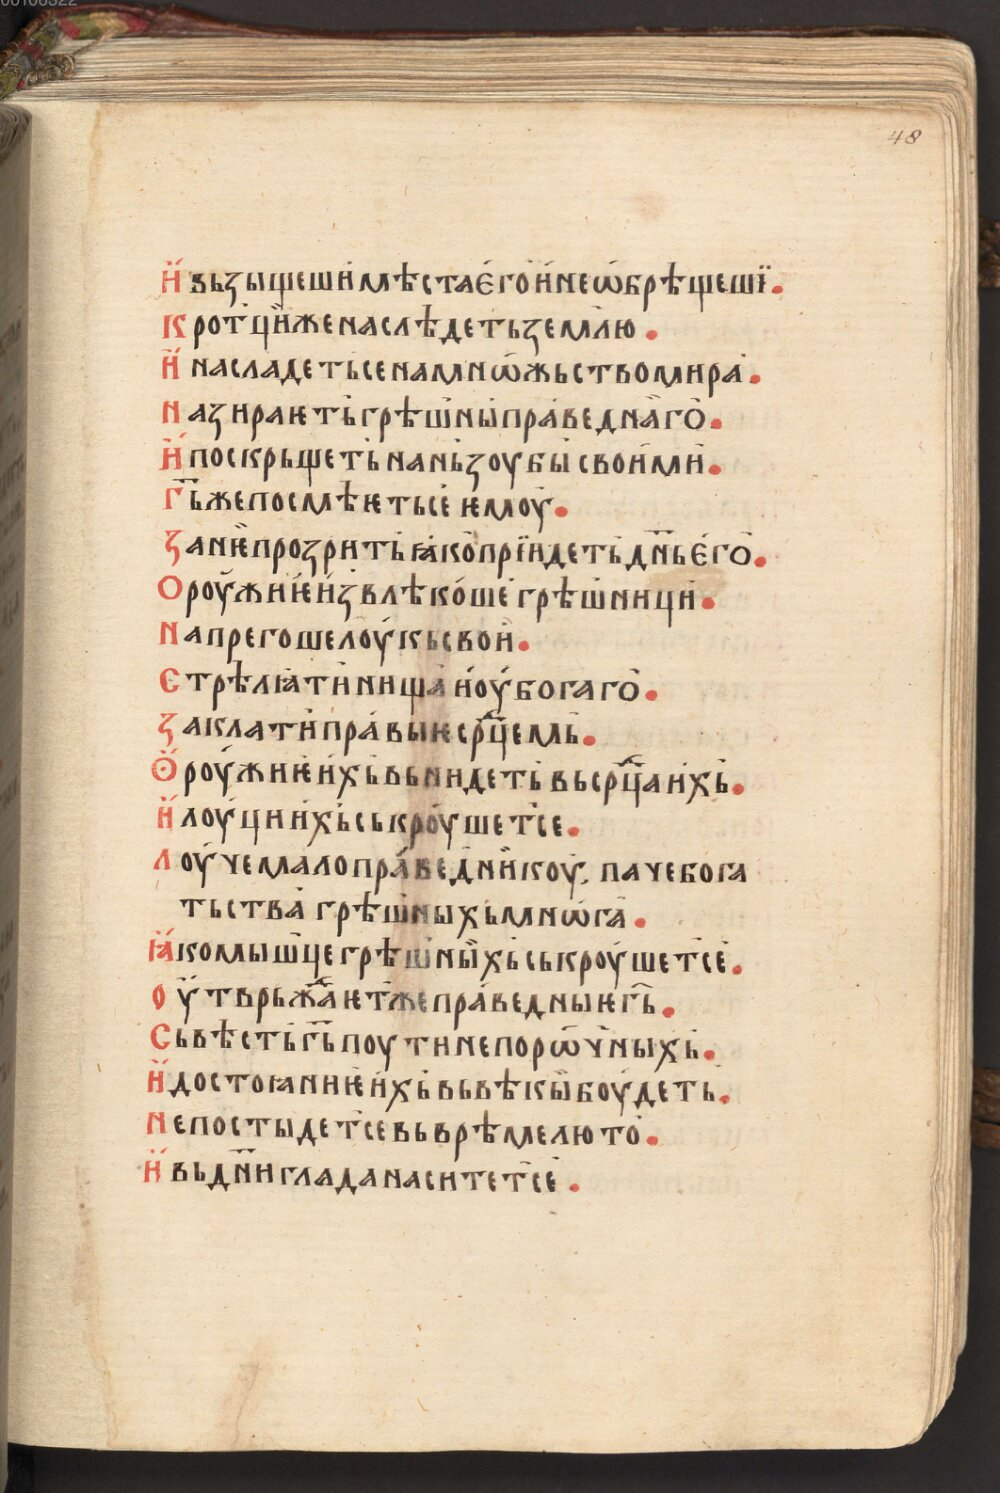 00108322
48
И҆ вьзыщеши мѣста є҆го и҆ не ѡ҆брѣщешї.
Кротци̏и же наслѣдеть землю.
И҆ насладетьсе на мнѡжьство мира.
Назираѥть грѣшныи праведнаго.
И҆ поскрьщеть на нь зоубы своими.
Г҃ь же посмѣѥтьсе ѥмоу.
Занѥ прозрить ꙗко прїидеть дн҃ь є҆го.
Ороужиѥ и҆звлѣкоше грѣшници.
Напрегоше лоукь свои.
Стрѣлꙗти нища и҆ оубогаго.
Заклати правыѥ срⷣцемь.
Ѻроужиѥ и҆хь вьнидеть вь срⷣца и҆хь.
И҆ лоуци и҆хь ськроушетсе.
Лоуче мало праведникоу, паче бога
тьства грѣшныхь мнѡга.
Ꙗко мышце грѣшныхь ськроушетсе.
Оутврьжⷣаѥт же праведныѥ г҃ь.
Сьвѣсть г҃ь поути непорѡчныхь.
И҆ достоꙗниѥ и҆хь вь вѣкы боудеть.
Не постыдетсе вь врѣме люто.
И҆ вь дн҃и глада наситетсе.